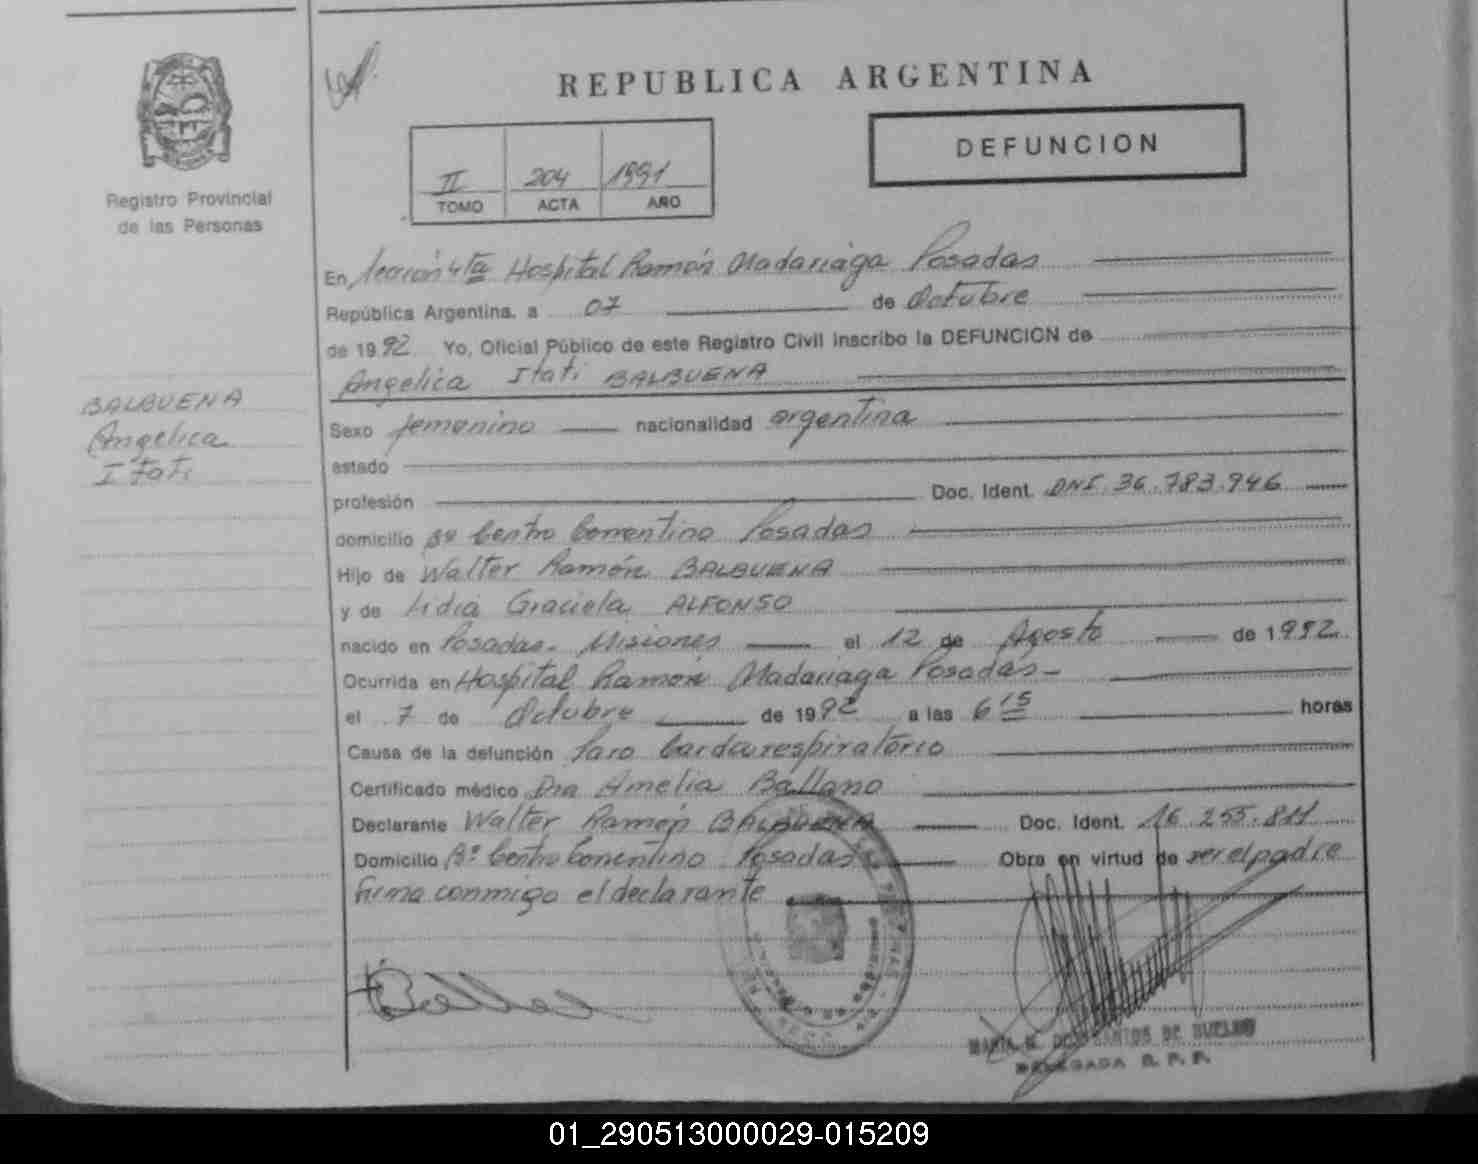 REPUBLICA ARGENTINA
DEFUNCION
Registro Provincial
de las Personas
II 204 1991
TOMO ACTA AÑO
En Sección 4ta Hospital Ramón Madariaga Posadas
República Argentina, a 07 de Octubre
de 1992 Yo, Oficial Público de este Registro Civil inscribo la DEFUNCION de
Angelica Itati BALBUENA
BALBUENA
Angelica
Itati
Sexo femenino nacionalidad argentina
estado
profesión Doc. Ident. DNI 36.783.946
domicilio Bº Centro Correntino Posadas
Hijo de Walter Ramón BALBUENA
y de Lidia Graciela ALFONSO
nacido en Posadas - Misiones el 12 de Agosto de 1992
Ocurrida en Hospital Ramón Madariaga Posadas -
el 7 de Octubre de 1992 a las 6 15 horas
Causa de la defunción Paro Cardiorespiratorio
Certificado médico Dra Amelia Ballano
Declarante Walter Ramón BALBUENA Doc. Ident. 16.255.811
Domicilio Bº Centro Correntino Posadas Obra en virtud de ser el padre
firma conmigo el declarante
DELEGADA R. P. P.
01_290513000029-015209